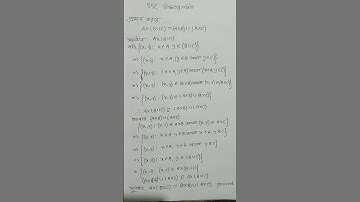 SSC উচ্চতর গণিত
প্রমাণ কর যে,
A×(B∪C) = (A×B)∪(A×C)
A×(B∪C)
= {(x,y): x∈A, y∈(B∪C)}
=> {(x,y): x∈A, (y∈B অথবা y∈C)}
=> {(x,y): (x∈A, y∈B) অথবা (x∈A, y∈C)}
=> {(x,y): (x,y)∈A×B অথবা (x,y)∈A×C}
=> {(x,y): (x,y)∈(A×B)∪(A×C)}
∴ A×(B∪C) ⊆ (A×B)∪(A×C)
আবার, (A×B)∪(A×C)
{(x,y): (x,y)∈A×B অথবা (x,y)∈A×C}
=> {(x,y): x∈A, y∈B অথবা x∈A, y∈C}
=> {(x,y): x∈A, y∈B অথবা y∈C}
=> {(x,y): x∈A, y∈(B∪C)}
= {(x,y): (x,y)∈A×(B∪C)}
(A×B)∪(A×C) ⊆ A×(B∪C)
সুতরাং A×(B∪C) = (A×B)∪(A×C) proved